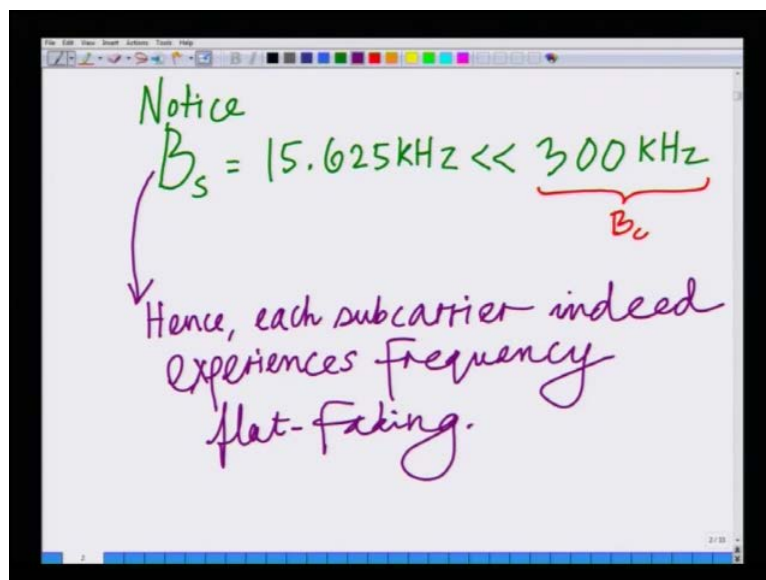 File Edit View Insert Actions Tools Help
Notice
Bs = 15.625KHz << 300 KHz
Bc
Hence, each subcarrier indeed
experiences Frequency
flat-Fading.
2/33
2